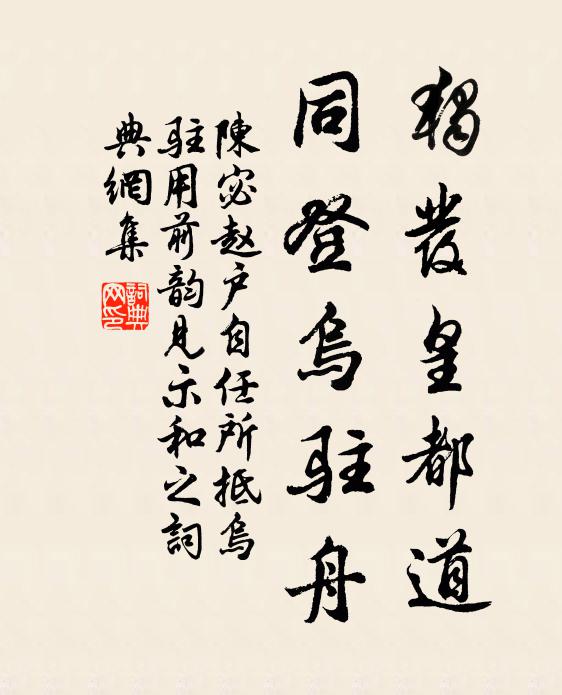 獨發皇都道
同登烏駐舟
陳宓赵户自任所抵烏
駐用前韵見示和之詞
典網集
詞典
网印